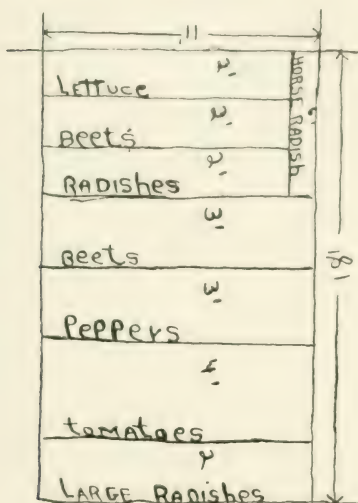 11
2'
LETTuce
2'
Beets
2'
RADISHes
HORSE RADISH
6'
3'
Beets
3'
PePPeRs
4'
toMAtoes
2
LARGE RADISHes
18'